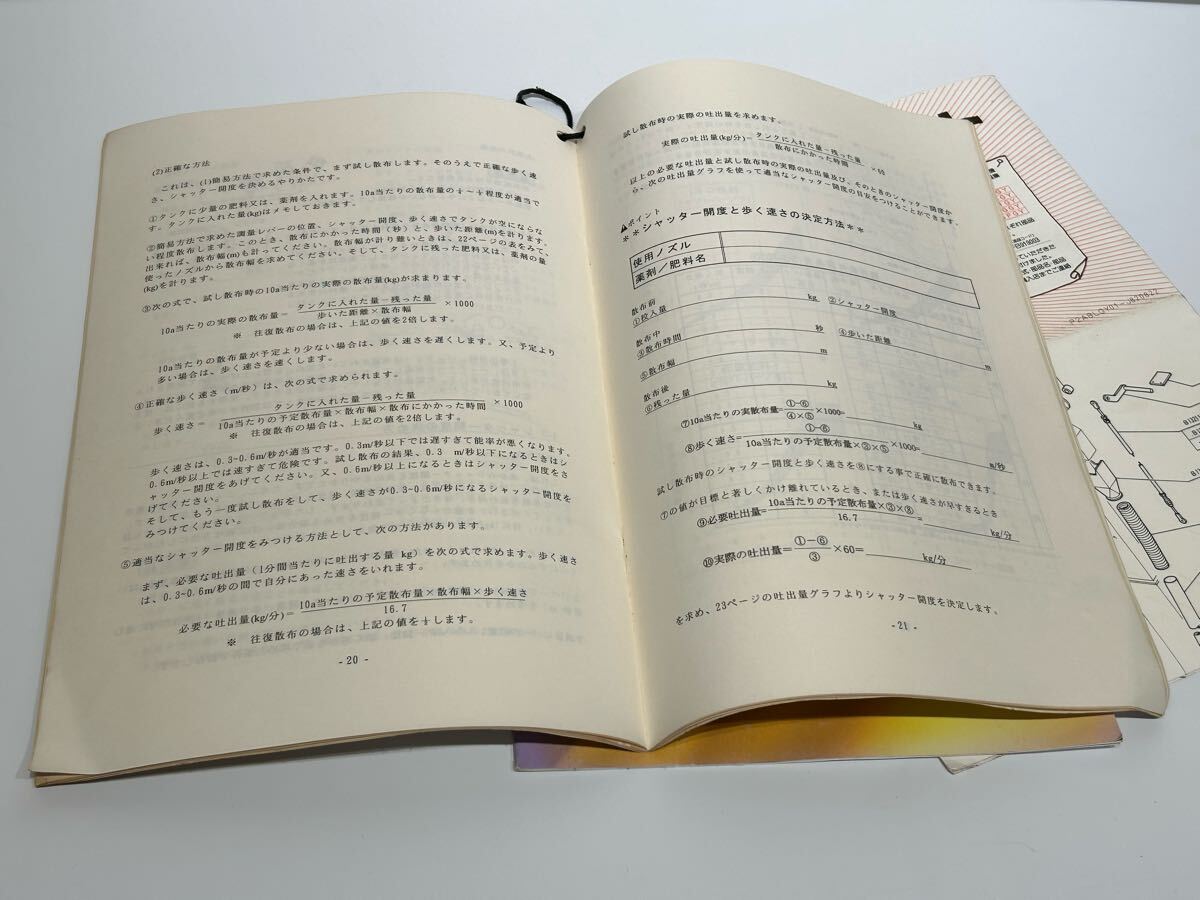 (2)正確な方法
これは、(1)簡易方法で求めた条件で、まず試し散布します。そのうえで正確な歩く速
さ、シャッター開度を決めるやりかたです。
①タンクに少量の肥料又は、薬剤を入れます。10a当たりの散布量の 〜 程度が適当で
す。タンクに入れた量(kg)はメモしておきます。
②簡易方法で求めた調量レバーの位置、シャッター開度、歩く速さでタンクが空にならな
い程度散布します。このとき、散布にかかった時間(秒)と、歩いた距離(m)を計ります。
出来れば、散布幅(m)も計ってください。散布幅が計り難いときは、22ページの表をみて、
使ったノズルから散布幅を求めてください。そして、タンクに残った肥料又は、薬剤の量
(kg)を計ります。
③次の式で、試し散布時の10a当たりの実際の散布量(kg)が求まります。
10a当たりの実際の散布量= タンクに入れた量−残った量 / 歩いた距離×散布幅 ×1000
※ 往復散布の場合は、上記の値を2倍します。
10a当たりの散布量が予定より少ない場合は、歩く速さを遅くします。又、予定より
多い場合は、歩く速さを速くします。
④正確な歩く速さ(m/秒)は、次の式で求められます。
歩く速さ= タンクに入れた量−残った量 / 10a当たりの予定散布量×散布幅×散布にかかった時間 ×1000
※ 往復散布の場合は、上記の値を2倍します。
歩く速さは、0.3~0.6m/秒が適当です。0.3m/秒以下では遅すぎて能率が悪くなります。
0.6m/秒以上では速すぎて危険です。試し散布の結果、0.3 m/秒以下になるときはシ
ャッター開度をあげてください。又、0.6m/秒以上になるときはシャッター開度をさ
げてください。
そして、もう一度試し散布をして、歩く速さが0.3~0.6m/秒になるシャッター開度を
みつけてください。
⑤適当なシャッター開度をみつける方法として、次の方法があります。
まず、必要な吐出量(1分間当たりに吐出する量 kg)を次の式で求めます。歩く速さ
は、0.3~0.6m/秒の間で自分にあった速さをいれます。
必要な吐出量(kg/分)= 10a当たりの予定散布量×散布幅×歩く速さ / 16.7
※ 往復散布の場合は、上記の値を½します。
- 20 -
試し散布時の実際の吐出量を求めます。
実際の吐出量(kg/分)= タンクに入れた量−残った量 / 散布にかかった時間 ×60
以上の必要な吐出量と試し散布時の実際の吐出量及び、そのときのシャッター開度か
ら、次の吐出量グラフを使って適当なシャッター開度の目安をつけることができます。
▲ポイント
**シャッター開度と歩く速さの決定方法**
使用ノズル
薬剤/肥料名
散布前
①投入量 kg ②シャッター開度
散布中
③散布時間 秒 ④歩いた距離 m
⑤散布幅 m
散布後
⑥残った量 kg
⑦10a当たりの実散布量= ①−⑥ / ④×⑤ ×1000=
⑧歩く速さ= ①−⑥ / 10a当たりの予定散布量×③×⑤ ×1000= m/秒
試し散布時のシャッター開度と歩く速さを⑧にする事で正確に散布できます。
⑦の値が目標と著しくかけ離れているとき、または歩く速さが早すぎるとき
⑨必要吐出量= 10a当たりの予定散布量×③×⑧ / 16.7 = kg/分
⑩実際の吐出量= ①−⑥ / ③ ×60= kg/分
を求め、23ページの吐出量グラフよりシャッター開度を決定します。
- 21 -
P2ABLQY01-J820822